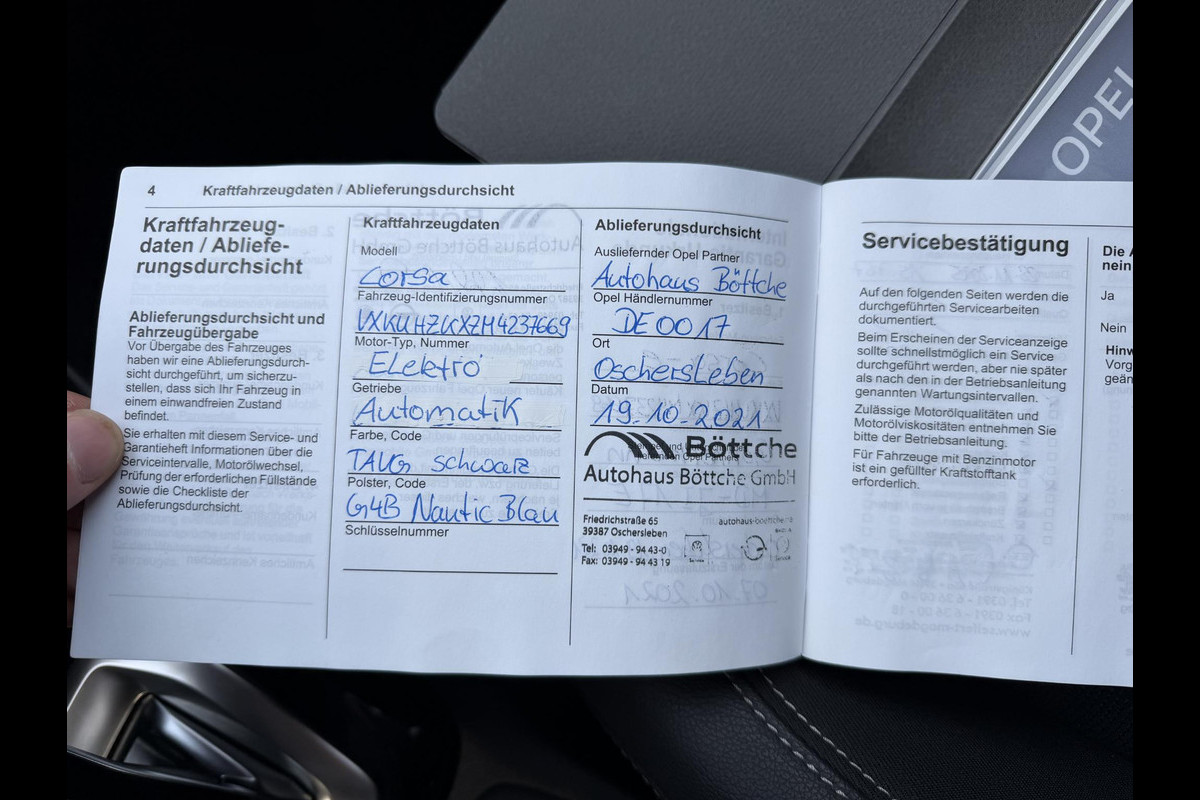 4 Kraftfahrzeugdaten / Ablieferungsdurchsicht
Kraftfahrzeug-
daten / Abliefe-
rungsdurchsicht
Ablieferungsdurchsicht und
Fahrzeugübergabe
Vor Übergabe des Fahrzeuges
haben wir eine Ablieferungsdurch-
sicht durchgeführt, um sicherzu-
stellen, dass sich Ihr Fahrzeug in
einem einwandfreien Zustand
befindet.
Sie erhalten mit diesem Service- und
Garantieheft Informationen über die
Serviceintervalle, Motorölwechsel,
Prüfung der erforderlichen Füllstände
sowie die Checkliste der
Ablieferungsdurchsicht.
Kraftfahrzeugdaten
Modell
Corsa
Fahrzeug-Identifizierungsnummer
VXKUHZKXZM4237669
Motor-Typ, Nummer
Elektro
Getriebe
Automatik
Farbe, Code
schwarz
Polster, Code
G4B Nautic Blau
Schlüsselnummer
Ablieferungsdurchsicht
Ausliefernder Opel Partner
Autohaus Böttche
Opel Händlernummer
DE0017
Ort
Oschersleben
Datum
19.10.2021
Böttche
Autohaus Böttche GmbH
Friedrichstraße 65
39387 Oschersleben
Tel: 03949 - 94 43-0
Fax: 03949 - 94 43 19
autohaus-boettche.de
Servicebestätigung
Auf den folgenden Seiten werden die
durchgeführten Servicearbeiten
dokumentiert.
Beim Erscheinen der Serviceanzeige
sollte schnellstmöglich ein Service
durchgeführt werden, aber nie später
als nach den in der Betriebsanleitung
genannten Wartungsintervallen.
Zulässige Motorölqualitäten und
Motorölviskositäten entnehmen Sie
bitte der Betriebsanleitung.
Für Fahrzeuge mit Benzinmotor
ist ein gefüllter Kraftstofftank
erforderlich.
Die
nein
Ja
Nein
Hinw
Vorg
geän
OPEL